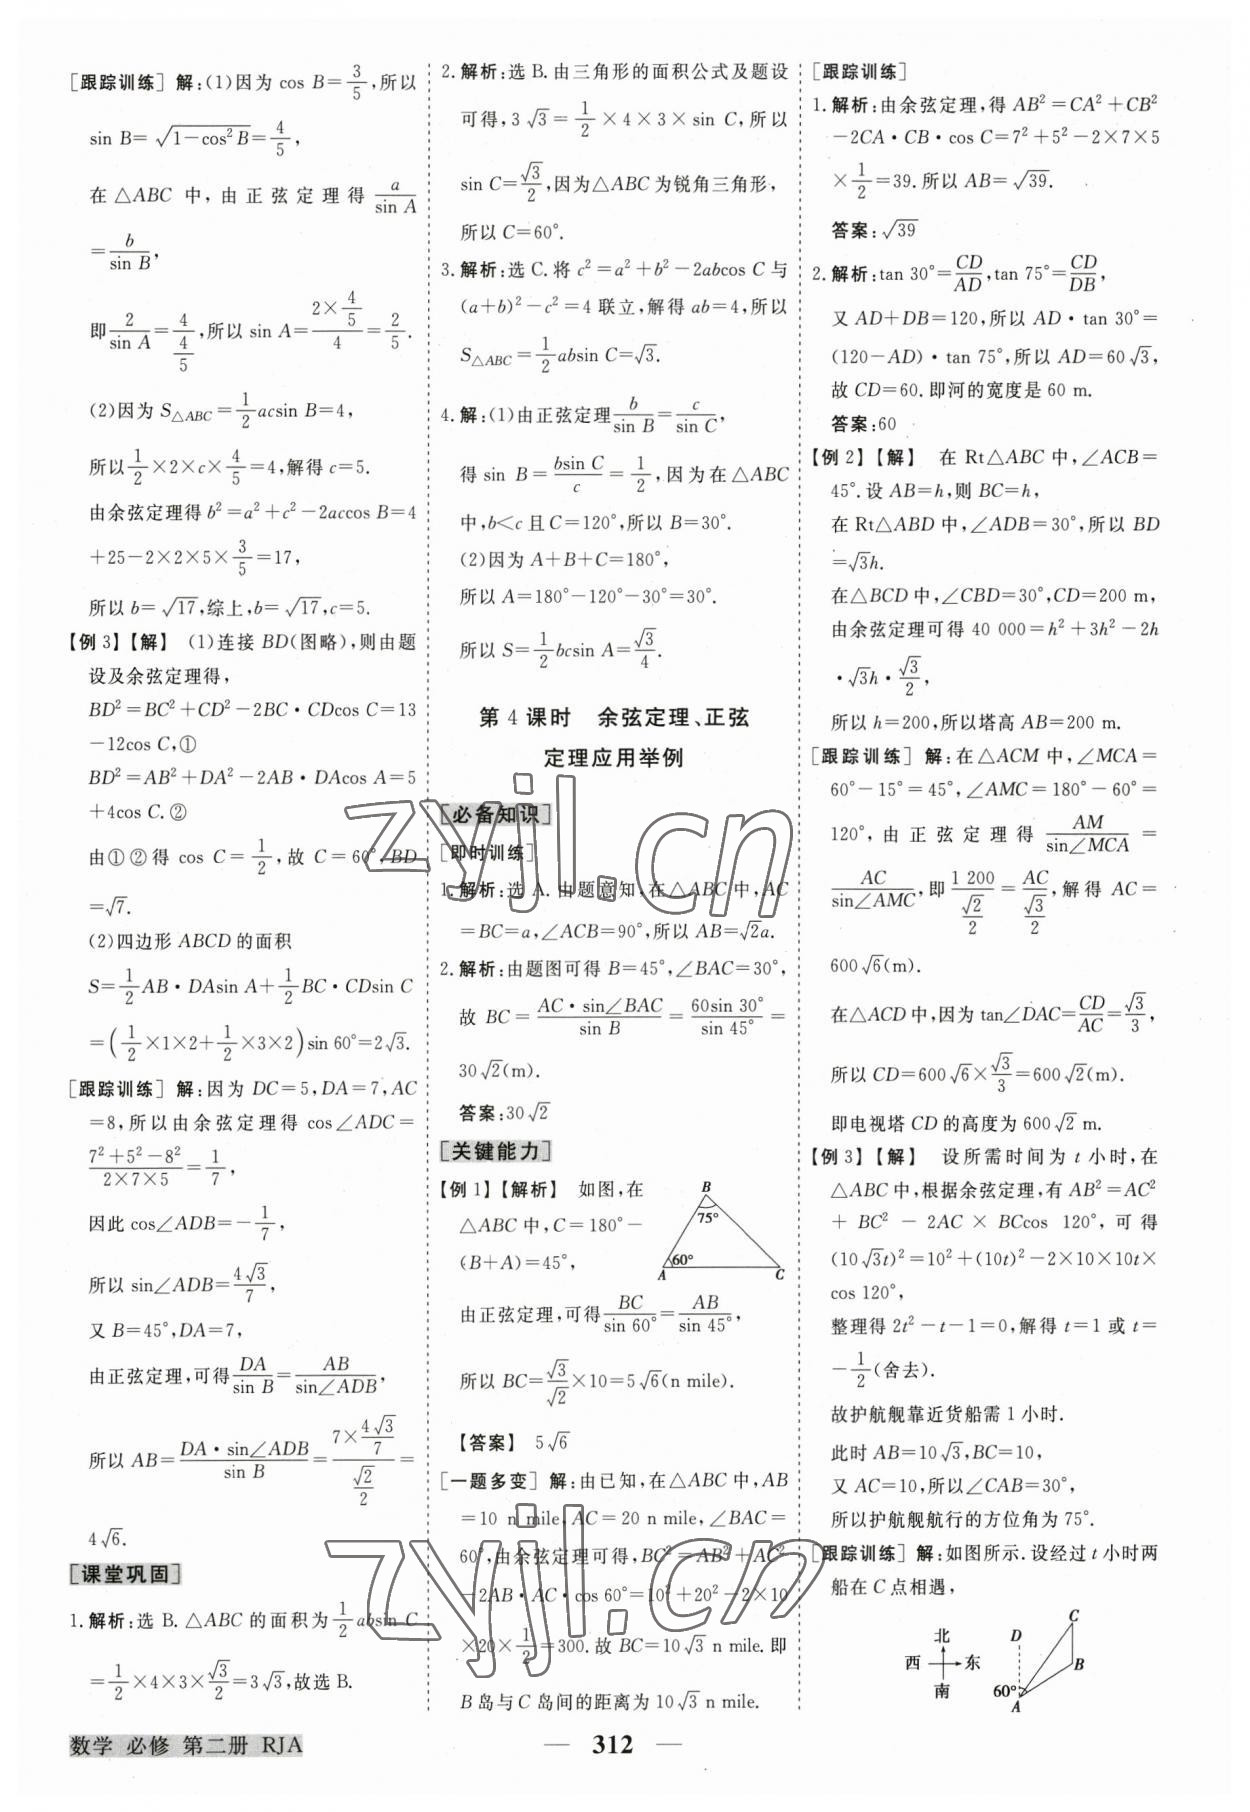 [跟踪训练] 解:(1)因为 cos B=3/5,所以
sin B=√(1-cos²B)=4/5,
在 △ABC 中, 由 正 弦 定 理 得 a/sin A
=b/sin B,
即 2/sin A=4/(4/5),所以 sin A=(2×4/5)/4=2/5.
(2)因为 S△ABC=1/2 acsin B=4,
所以1/2×2×c×4/5=4,解得 c=5.
由余弦定理得 b²=a²+c²-2accos B=4
+25-2×2×5×3/5=17,
所以 b=√17,综上,b=√17,c=5.
【例 3】【解】 (1)连接 BD(图略),则由题
设及余弦定理得,
BD²=BC²+CD²-2BC·CDcos C=13
-12cos C,①
BD²=AB²+DA²-2AB·DAcos A=5
+4cos C.②
由①②得 cos C=1/2,故 C=60°,BD
=√7.
(2)四边形 ABCD 的面积
S=1/2AB·DAsin A+1/2BC·CDsin C
=(1/2×1×2+1/2×3×2)sin 60°=2√3.
[跟踪训练] 解:因为 DC=5,DA=7,AC
=8,所以由余弦定理得 cos∠ADC=
(7²+5²-8²)/(2×7×5)=1/7,
因此 cos∠ADB=-1/7,
所以 sin∠ADB=4√3/7,
又 B=45°,DA=7,
由正弦定理,可得DA/sin B=AB/sin∠ADB,
所以 AB=DA·sin∠ADB/sin B=(7×4√3/7)/(√2/2)=
4√6.
[课堂巩固]
1.解析:选 B. △ABC 的面积为1/2absin C
=1/2×4×3×√3/2=3√3,故选 B.
2.解析:选 B.由三角形的面积公式及题设
可得,3√3=1/2×4×3×sin C,所以
sin C=√3/2,因为△ABC 为锐角三角形,
所以 C=60°.
3.解析:选 C.将 c²=a²+b²-2abcos C 与
(a+b)²-c²=4 联立,解得 ab=4,所以
S△ABC=1/2absin C=√3.
4.解:(1)由正弦定理b/sin B=c/sin C,
得 sin B=bsin C/c=1/2,因为在△ABC
中,b<c 且 C=120°,所以 B=30°.
(2)因为 A+B+C=180°,
所以 A=180°-120°-30°=30°.
所以 S=1/2bcsin A=√3/4.
第 4 课时 余弦定理、正弦
定理应用举例
[必备知识]
[即时训练]
1.解析:选 A. 由题意知,在△ABC 中,AC
=BC=a,∠ACB=90°,所以 AB=√2a.
2.解析:由题图可得 B=45°,∠BAC=30°,
故 BC=AC·sin∠BAC/sin B=60sin 30°/sin 45°=
30√2(m).
答案:30√2
[关键能力]
【例 1】【解析】 如图,在
△ABC 中,C=180°-
(B+A)=45°,
B
75°
60°
A C
由正弦定理,可得BC/sin 60°=AB/sin 45°,
所以 BC=√3/√2×10=5√6(n mile).
【答案】 5√6
[一题多变] 解:由已知,在△ABC 中,AB
=10 n mile,AC=20 n mile,∠BAC=
60°,由余弦定理可得,BC²=AB²+AC²
-2AB·AC·cos 60°=10²+20²-2×10
×20×1/2=300.故 BC=10√3 n mile.即
B 岛与 C 岛间的距离为 10√3 n mile.
[跟踪训练]
1.解析:由余弦定理,得 AB²=CA²+CB²
-2CA·CB·cos C=7²+5²-2×7×5
×1/2=39.所以 AB=√39.
答案:√39
2.解析:tan 30°=CD/AD,tan 75°=CD/DB,
又 AD+DB=120,所以 AD·tan 30°=
(120-AD)·tan 75°,所以 AD=60√3,
故 CD=60.即河的宽度是 60 m.
答案:60
【例 2】【解】 在 Rt△ABC 中,∠ACB=
45°.设 AB=h,则 BC=h,
在 Rt△ABD 中,∠ADB=30°,所以 BD
=√3h.
在△BCD 中,∠CBD=30°,CD=200 m,
由余弦定理可得 40 000=h²+3h²-2h
·√3h·√3/2,
所以 h=200,所以塔高 AB=200 m.
[跟踪训练] 解:在△ACM 中,∠MCA=
60°-15°=45°,∠AMC=180°-60°=
120°, 由 正 弦 定 理 得 AM/sin∠MCA=
AC/sin∠AMC,即1 200/(√2/2)=AC/(√3/2),解得 AC=
600√6(m).
在△ACD 中,因为 tan∠DAC=CD/AC=√3/3,
所以 CD=600√6×√3/3=600√2(m).
即电视塔 CD 的高度为 600√2 m.
【例 3】【解】 设所需时间为 t 小时,在
△ABC 中,根据余弦定理,有 AB²=AC²
+BC²-2AC×BCcos 120°,可得
(10√3t)²=10²+(10t)²-2×10×10t×
cos 120°,
整理得 2t²-t-1=0,解得 t=1 或 t=
-1/2(舍去).
故护航舰靠近货船需 1 小时.
此时 AB=10√3,BC=10,
又 AC=10,所以∠CAB=30°,
所以护航舰航行的方位角为 75°.
[跟踪训练] 解:如图所示.设经过 t 小时两
船在 C 点相遇,
北
西 东
南
D C
B
60°
A
zyjl.cn
zyjl.cn
数学 必修 第二册 RJA
— 312 —